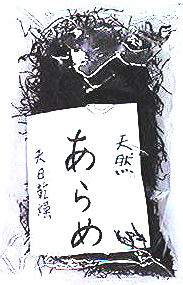 天然
あらめ
天日乾燥